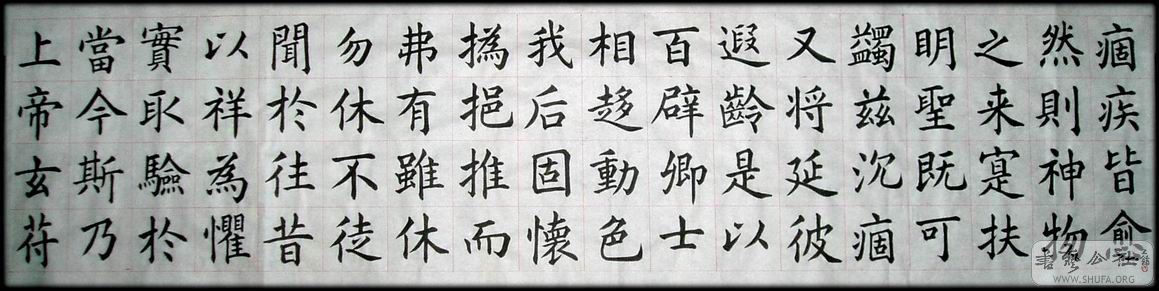 痼疾皆愈
然則神物
之来寔扶
明聖既可
蠲兹沉痼
又将延彼
遐齡是以
百辟卿士
相趍動色
我后固懷
撝挹推而
弗有雖休
勿休不徒
聞於往昔
以祥為懼
實取驗於
當今斯乃
上帝玄苻
WWW.SHUFA.ORG